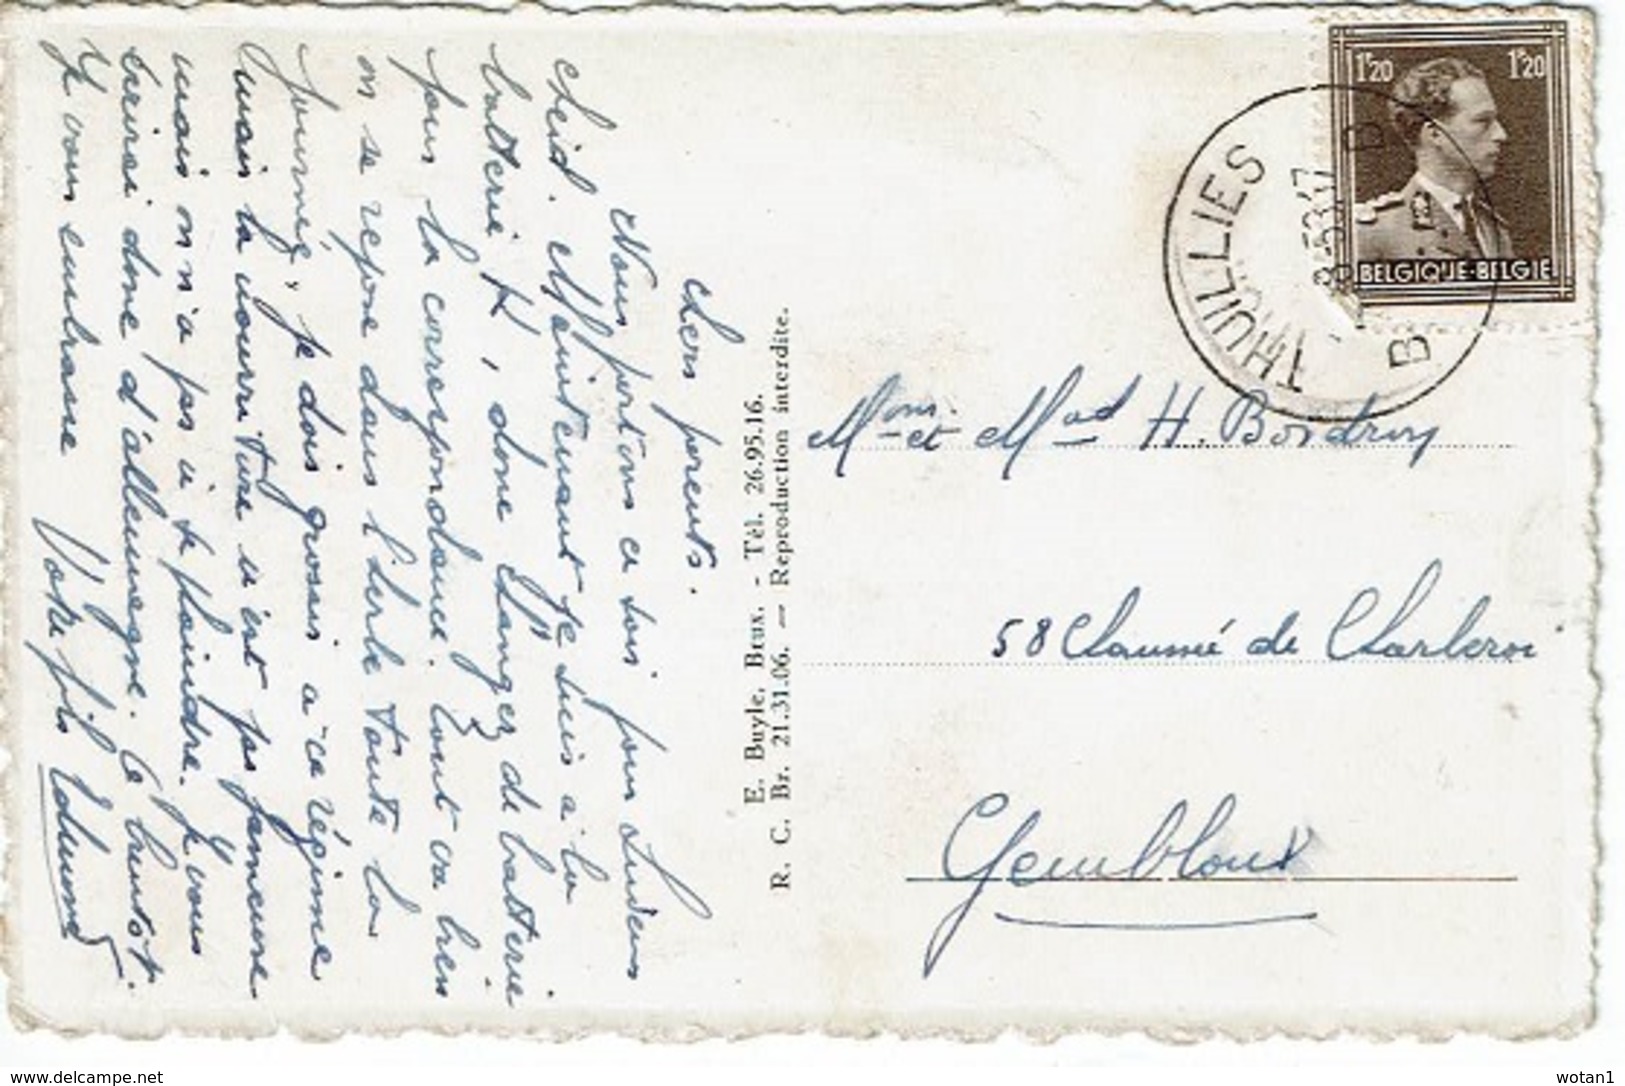 Chers parents.
Nous partons ce soir pour Ludens
cheid. Maintenant je suis à la
batterie K, donc changez de batterie
pour la correspondance. Tout va bien
on se repose dans l'herbe toute la
journée, je dois grossir à ce régime
mais la nourriture n'est pas fameuse
mais on n'a pas à se plaindre. Je vous
écrirai donc d'allemagne. à bientôt.
Je vous embrasse Votre fils Edmond
E. Buyle, Brux. - Tél. 26.95.16.
R. C. Br. 21.31.06. — Reproduction interdite.
1F20 1F20
BELGIQUE-BELGIE
THUILLIES
B B
Mons. et Mad H. Bordry
58 Chaussée de Charleroi
Gembloux
www.delcampe.net
wotan1